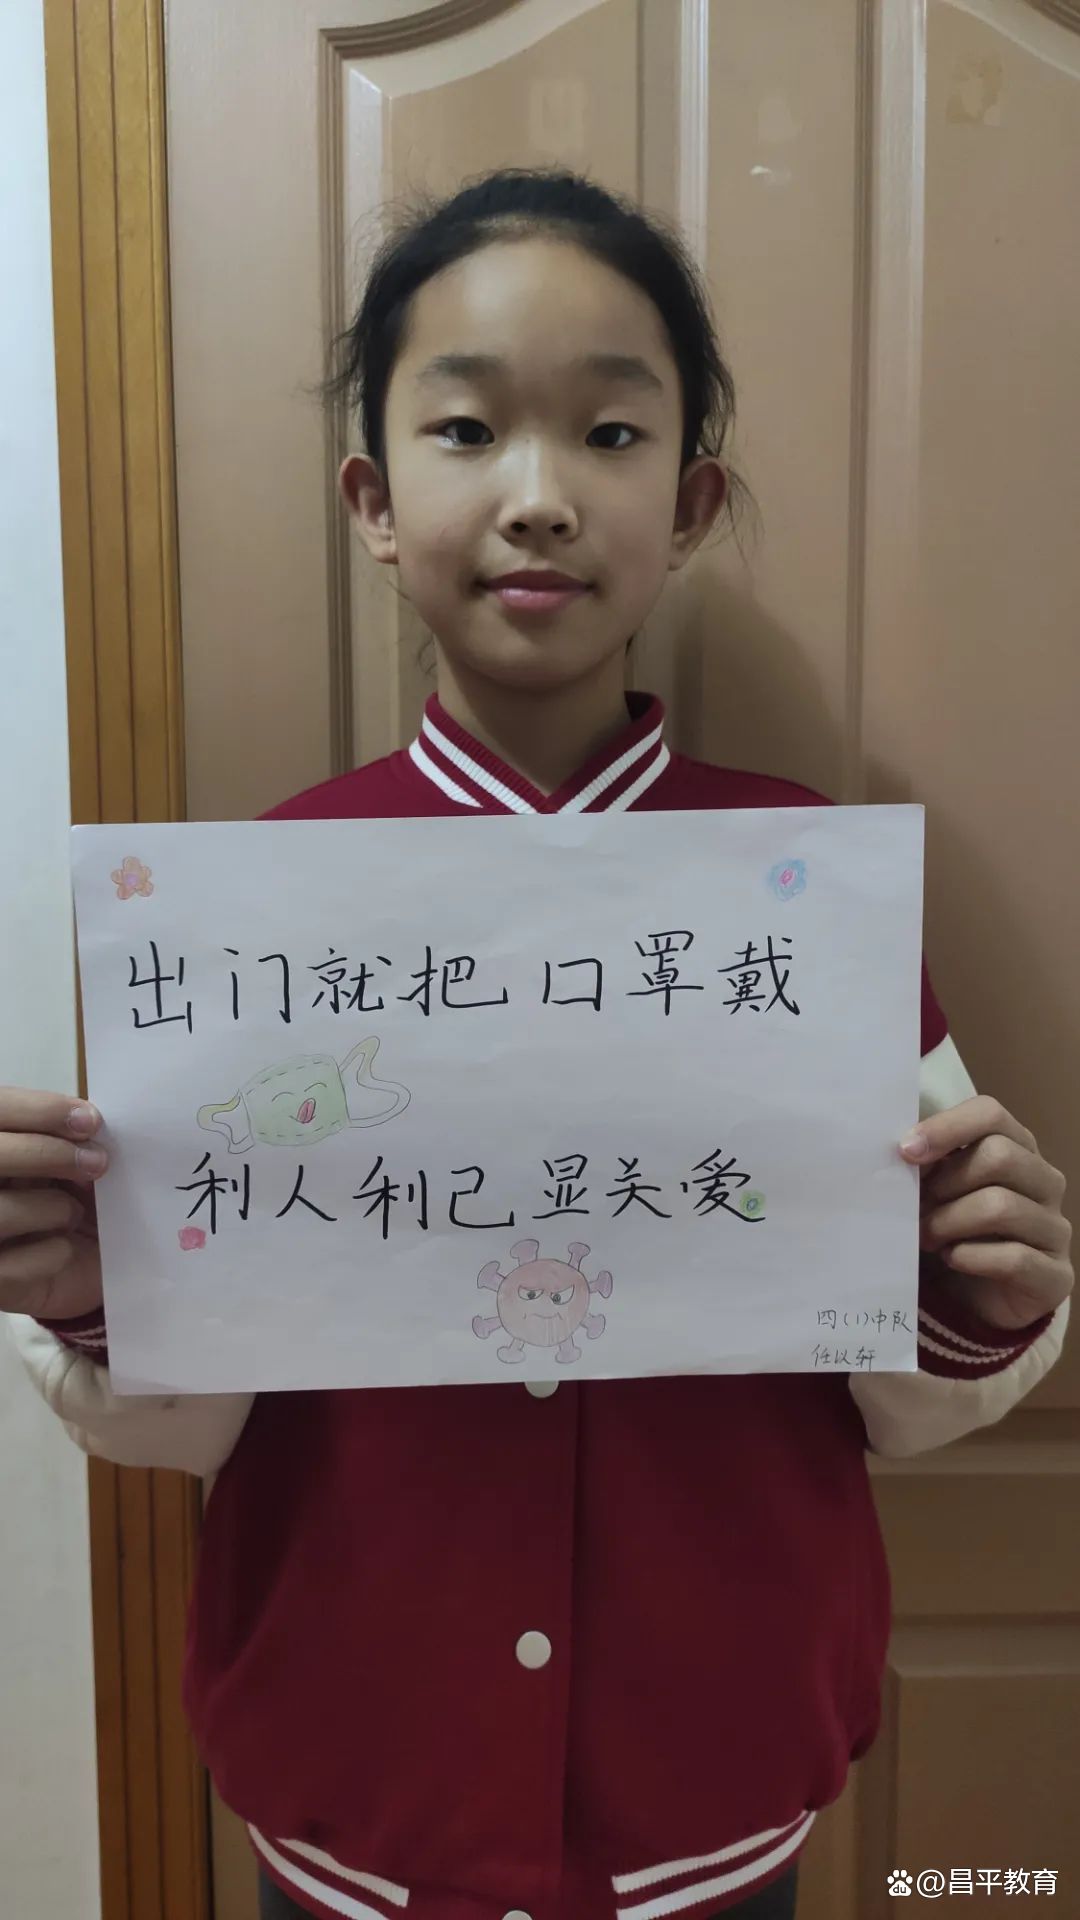 出门就把口罩戴
利人利己显关爱
四(1)中队
任以轩
du @昌平教育